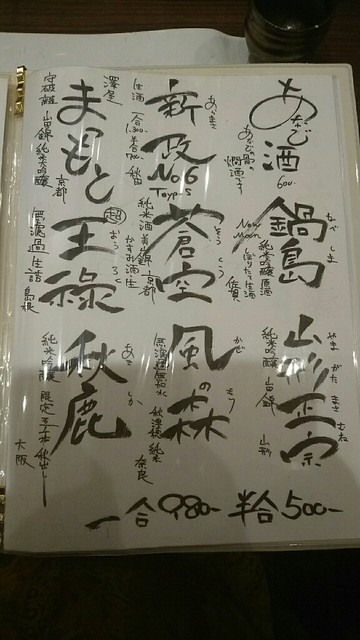 あなご酒 600-
あなごの骨の
燗酒です
鍋島
なべしま
New Moon
純米吟醸 原酒
しぼりたて生酒
佐賀
山形正宗
やまがたまさむね
純米吟醸
山田錦
山形
新政 No6
あらまさ
生酒
秋田
蒼空
そうくう
純米酒 美山錦 京都
かすみ酒・生
風の森
かぜのもり
無濾過無加水
秋津穂 純米
奈良
まつもと
澤屋
守破離 山田錦 純米吟醸
京都
王祿
超
おうろく
無濾過生詰
島根
秋鹿
あきしか
純米吟醸
大阪
一合 980- 半合 500-